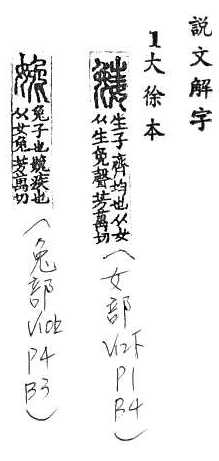 說文解字
1大徐本
生子齊均也从女
从生免聲芳萬切
(女部
V12下
P1
B4)
兔子也娩疾也
从女兔芳萬切
(兔部
V10上
P4
B3)